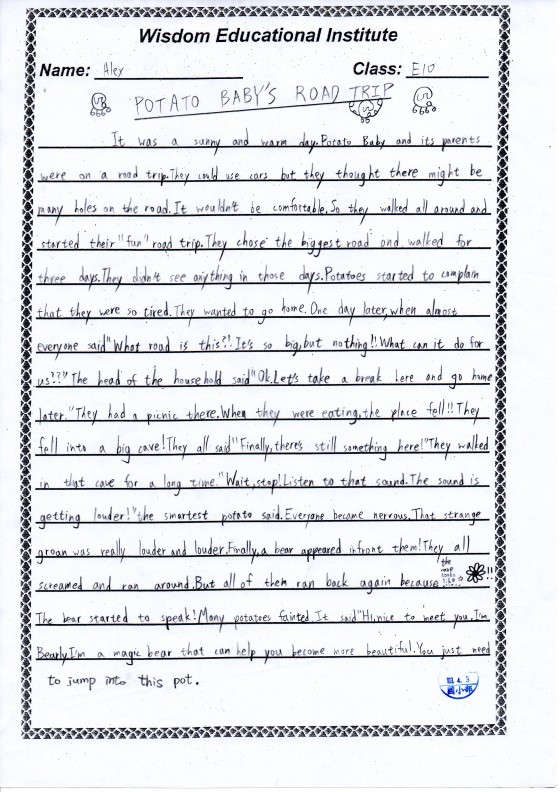 Wisdom Educational Institute
Name: Aley Class: E10
POTATO BABY'S ROAD TRIP
It was a sunny and warm day.Potato Baby and its parents
were on a road trip.They could use cars but they thought there might be
many holes on the road.It wouldn't be comfortable.So they walked all around and
started their "fun" road trip.They chose the biggest road and walked for
three days.They didn't see anything in those days.Potatoes started to complain
that they were so tired.They wanted to go home.One day later,when almost
everyone said"What road is this?!It's so big,but nothing!!What can it do for
us???"The head of the household said"Ok.Let's take a break here and go home
later."They had a picnic there.When they were eating,the place fell!!They
fell into a big cave!They all said"Finally,there's still something here!"They walked
in that cave for a long time."Wait,stop!Listen to that sound.The sound is
getting louder!"the smartest potato said.Everyone became nervous.That strange
groan was really louder and louder.Finally,a bear appeared infront them!They all
screamed and ran around.But all of them ran back again because the cave looks like → !!
The bear started to speak!Many potatoes fainted.It said"Hi,nice to meet you.I'm
Bearly.I'm a magic bear that can help you become more beautiful.You just need
to jump into this pot.